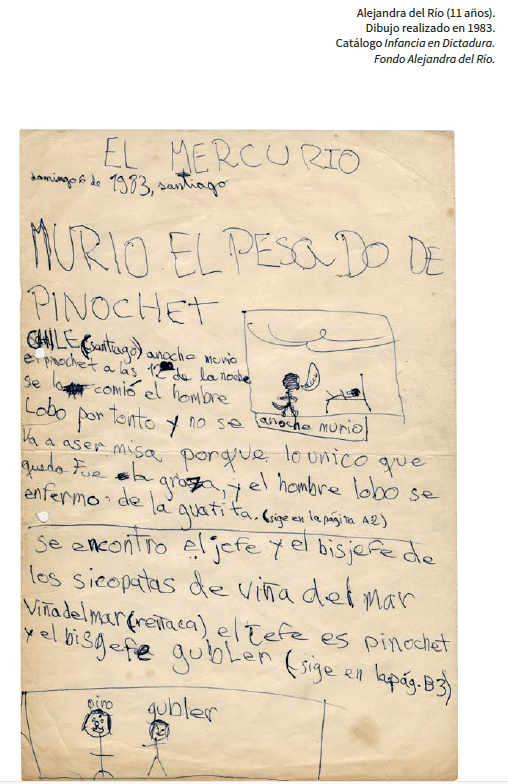 Alejandra del Río (11 años).
Dibujo realizado en 1983.
Catálogo Infancia en Dictadura.
Fondo Alejandra del Río.
EL MERCURIO
domingo 6 de 1983, santiago
MURIO EL PESADO DE
PINOCHET
CHILE (santiago) anoche murio
el pinochet a las 12 de la noche
se lo comió el hombre
Lobo por tonto y no se
va a aser misa porque lo unico que
quedo Fue la graza, y el hombre lobo se
enfermo de la guatita. (sige en la página A2)
anoche murio
se encontro el jefe y el bisjefe de
los sicopatas de viña del mar
Viña del mar (reñaca) el jefe es pinochet
y el bisgefe gubler (sige en la pág. B3)
pino
gubler